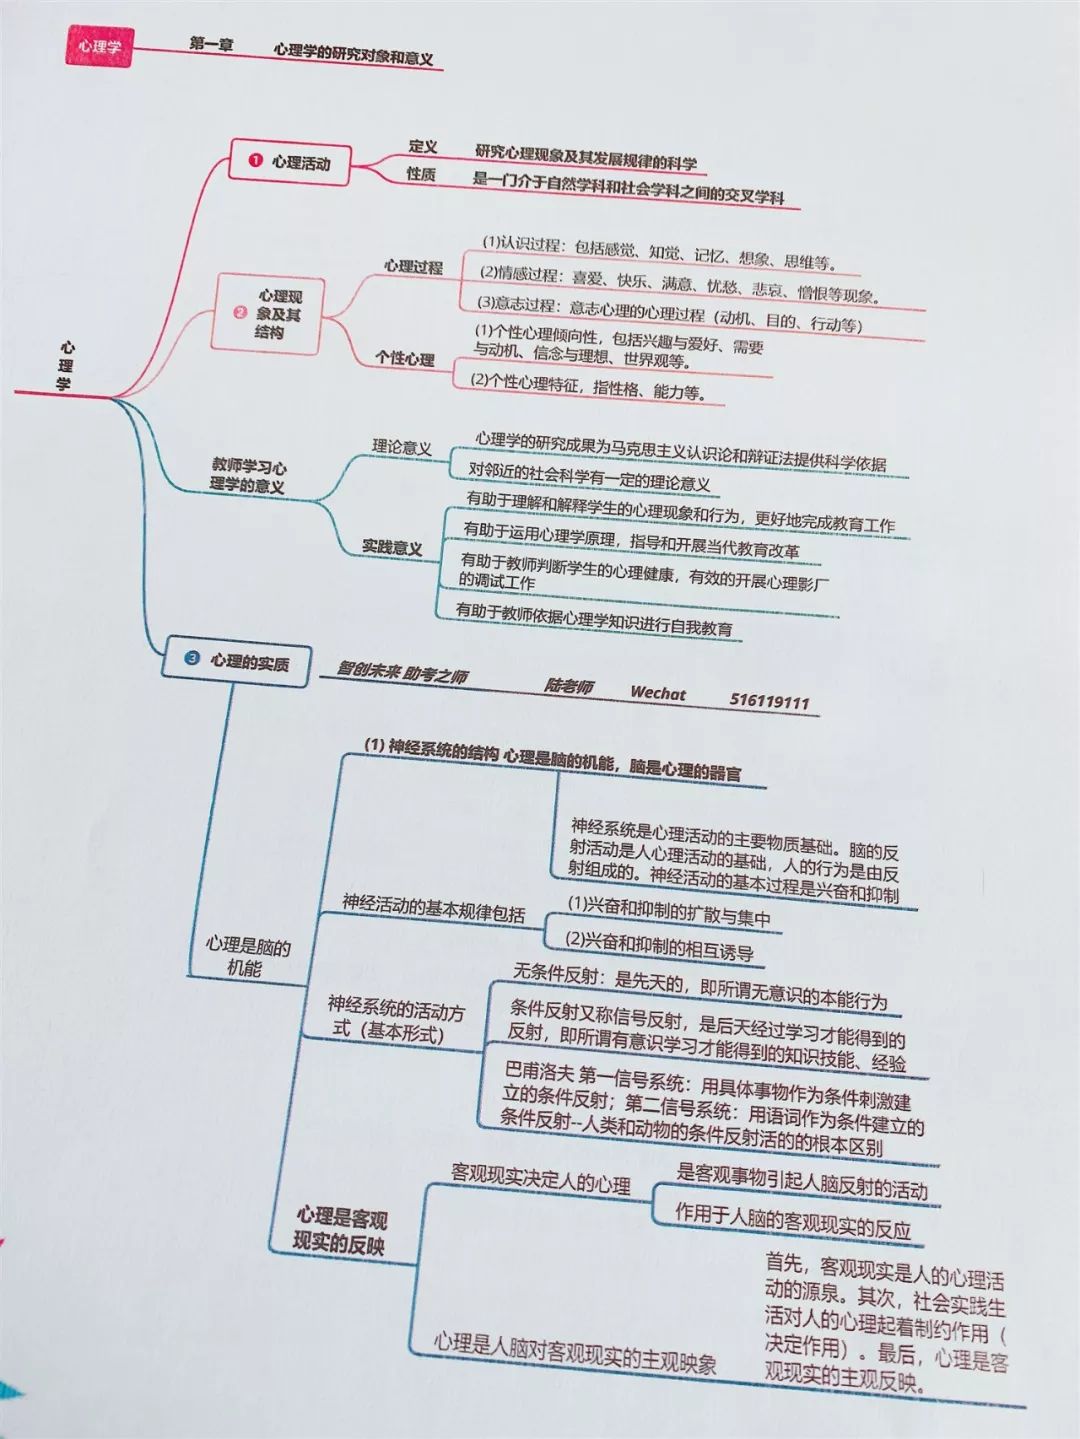 心理学 第一章 心理学的研究对象和意义
心理学
❶ 心理活动
定义 研究心理现象及其发展规律的科学
性质 是一门介于自然学科和社会学科之间的交叉学科
❷ 心理现
象及其
结构
心理过程
(1)认识过程：包括感觉、知觉、记忆、想象、思维等。
(2)情感过程：喜爱、快乐、满意、忧愁、悲哀、憎恨等现象。
(3)意志过程：意志心理的心理过程（动机、目的、行动等）
个性心理
(1)个性心理倾向性，包括兴趣与爱好、需要
与动机、信念与理想、世界观等。
(2)个性心理特征，指性格、能力等。
教师学习心
理学的意义
理论意义
心理学的研究成果为马克思主义认识论和辩证法提供科学依据
对邻近的社会科学有一定的理论意义
实践意义
有助于理解和解释学生的心理现象和行为，更好地完成教育工作
有助于运用心理学原理，指导和开展当代教育改革
有助于教师判断学生的心理健康，有效的开展心理影厂
的调试工作
有助于教师依据心理学知识进行自我教育
❸ 心理的实质
智创未来 助考之师 陆老师 Wechat 516119111
心理是脑的
机能
(1) 神经系统的结构 心理是脑的机能，脑是心理的器官
神经系统是心理活动的主要物质基础。脑的反
射活动是人心理活动的基础，人的行为是由反
射组成的。神经活动的基本过程是兴奋和抑制
神经活动的基本规律包括
(1)兴奋和抑制的扩散与集中
(2)兴奋和抑制的相互诱导
神经系统的活动方
式（基本形式）
无条件反射：是先天的，即所谓无意识的本能行为
条件反射又称信号反射，是后天经过学习才能得到的
反射，即所谓有意识学习才能得到的知识技能、经验
巴甫洛夫 第一信号系统：用具体事物作为条件刺激建
立的条件反射；第二信号系统：用语词作为条件建立的
条件反射--人类和动物的条件反射活的的根本区别
心理是客观
现实的反映
客观现实决定人的心理
是客观事物引起人脑反射的活动
作用于人脑的客观现实的反应
心理是人脑对客观现实的主观映象
首先，客观现实是人的心理活
动的源泉。其次，社会实践生
活对人的心理起着制约作用（
决定作用）。最后，心理是客
观现实的主观反映。